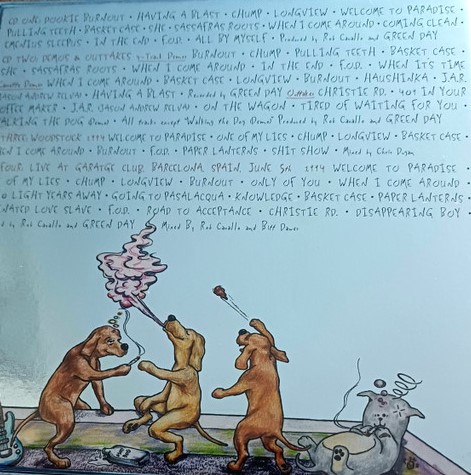 CD ONE: DOOKIE BURNOUT • HAVING A BLAST • CHUMP • LONGVIEW • WELCOME TO PARADISE •
PULLING TEETH • BASKET CASE • SHE • SASSAFRAS ROOTS • WHEN I COME AROUND • COMING CLEAN •
EMENIUS SLEEPUS • IN THE END • F.O.D. • ALL BY MYSELF • Produced by Rob Cavallo and GREEN DAY
CD TWO: DEMOS & OUTTAKES 4-Track Demos BURNOUT • CHUMP • PULLING TEETH • BASKET CASE •
SHE • SASSAFRAS ROOTS • WHEN I COME AROUND • IN THE END • F.O.D. • WHEN IT'S TIME
Cassette Demos WHEN I COME AROUND • BASKET CASE • LONGVIEW • BURNOUT • HAUSHINKA • J.A.R.
(JASON ANDREW RELVA) • HAVING A BLAST • Recorded by GREEN DAY Outtakes CHRISTIE RD. • 409 IN YOUR
COFFEE MAKER • J.A.R. (JASON ANDREW RELVA) • ON THE WAGON • TIRED OF WAITING FOR YOU •
WALKING THE DOG (Demo) • All tracks except 'Walking the Dog (Demo)' Produced by Rob Cavallo and GREEN DAY
THREE: WOODSTOCK 1994 WELCOME TO PARADISE • ONE OF MY LIES • CHUMP • LONGVIEW • BASKET CASE •
WHEN I COME AROUND • BURNOUT • F.O.D. • PAPER LANTERNS • SHIT SHOW • Mixed by Chris Dugan
FOUR: LIVE AT GARATGE CLUB, BARCELONA, SPAIN, JUNE 5th, 1994 WELCOME TO PARADISE •
OF MY LIES • CHUMP • LONGVIEW • BURNOUT • ONLY OF YOU • WHEN I COME AROUND
LIGHT YEARS AWAY • GOING TO PASALACQUA • KNOWLEDGE • BASKET CASE • PAPER LANTERNS •
NATED LOVE SLAVE • F.O.D. • ROAD TO ACCEPTANCE • CHRISTIE RD. • DISAPPEARING BOY
by Rob Cavallo and GREEN DAY Mixed By Rob Cavallo and Biff Dawes